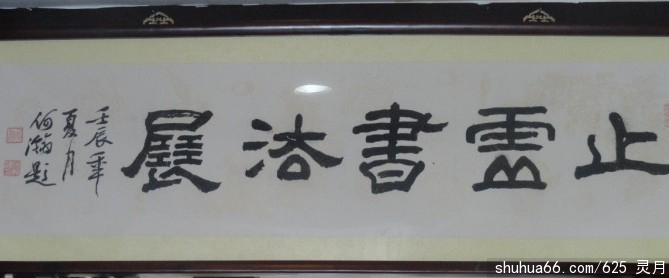 止霊書法展
壬辰年
夏月
何瀚题
shuhua66.com/625 灵月